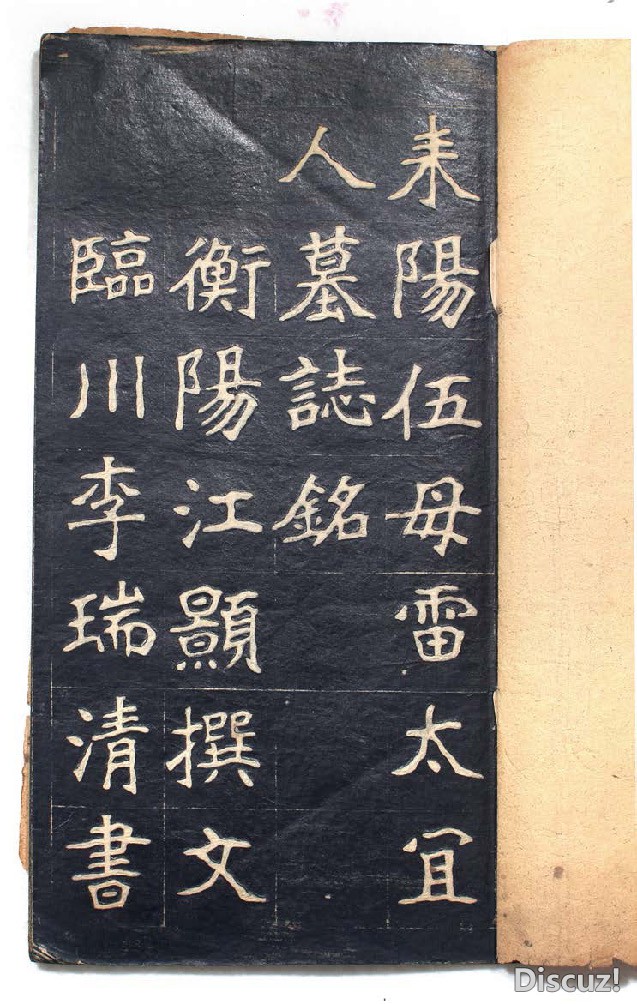 耒陽伍母雷太宜
人墓誌銘
衡陽江顥撰文
臨川李瑞清書
Discuz!